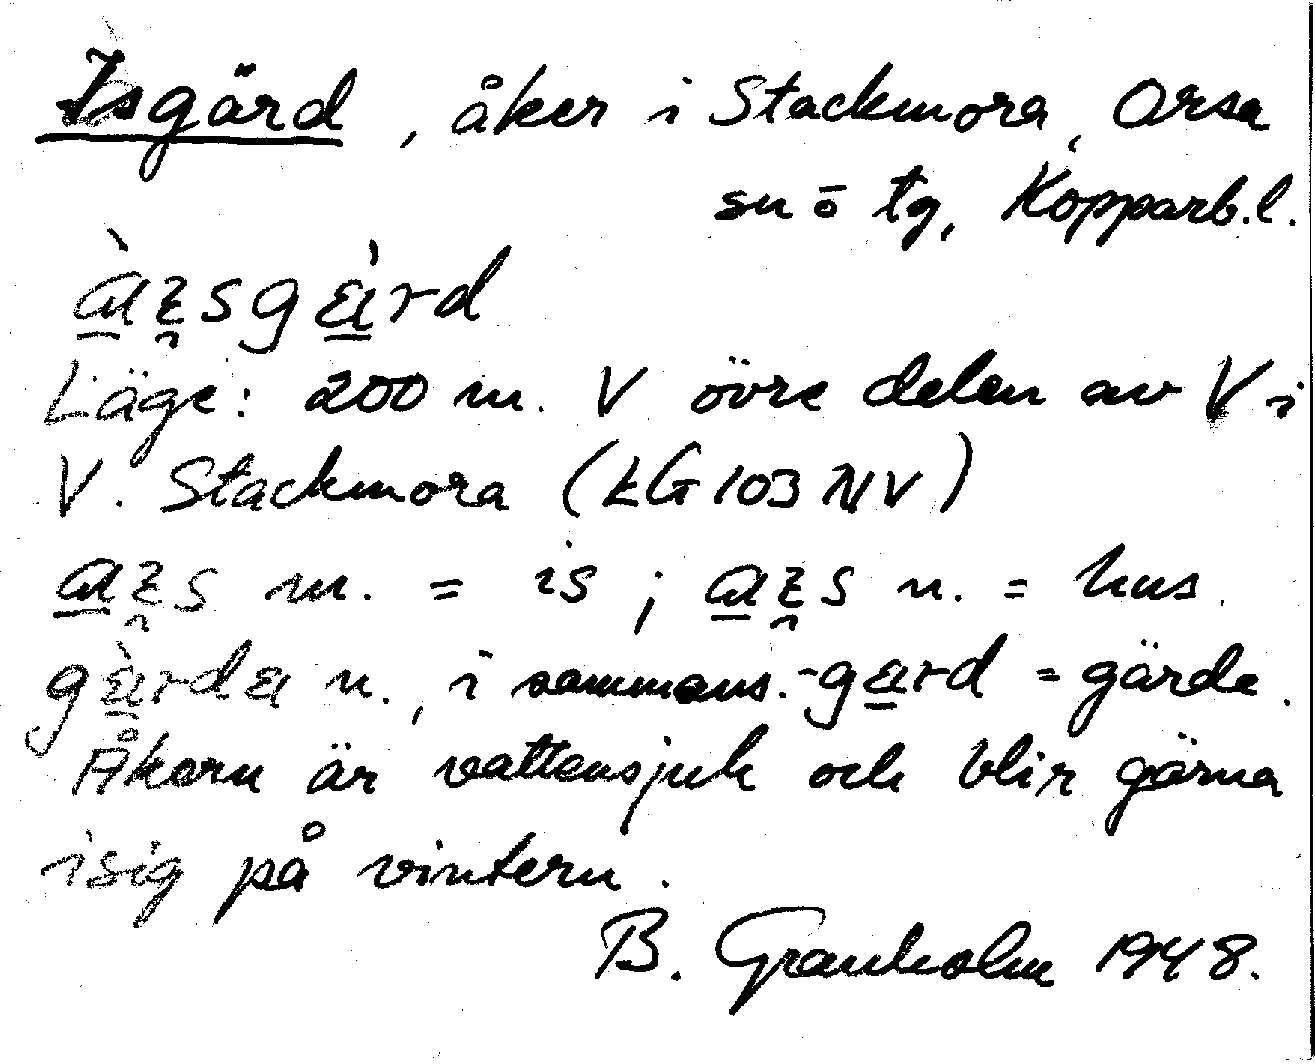 Isgärd, åker i Stackmora, Orsa
sn o tg, Kopparb.l.
Läge: 200 m. V övre delen av V i
V. Stackmora (kG 103 NV)
m. = is; n. = hus.
n., i sammans. = gärde.
Åkern är vattensjuk och blir gärna
isig på vintern.
B. Granholm 1948.